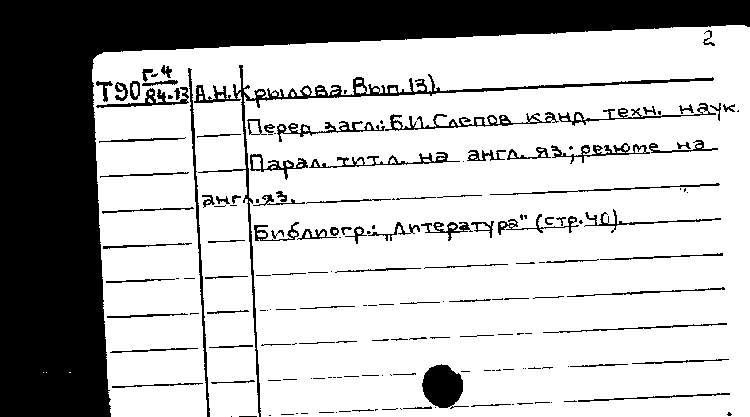 2
Т90 Г-4
84-13 А.Н.Крылова. Вып. 13).
Перед загл.: Б.И.Слепов канд. техн. наук.
Парал. тит.л. на англ. яз.; резюме на
англ.яз.
Библиогр.: „Литература" (стр.40).